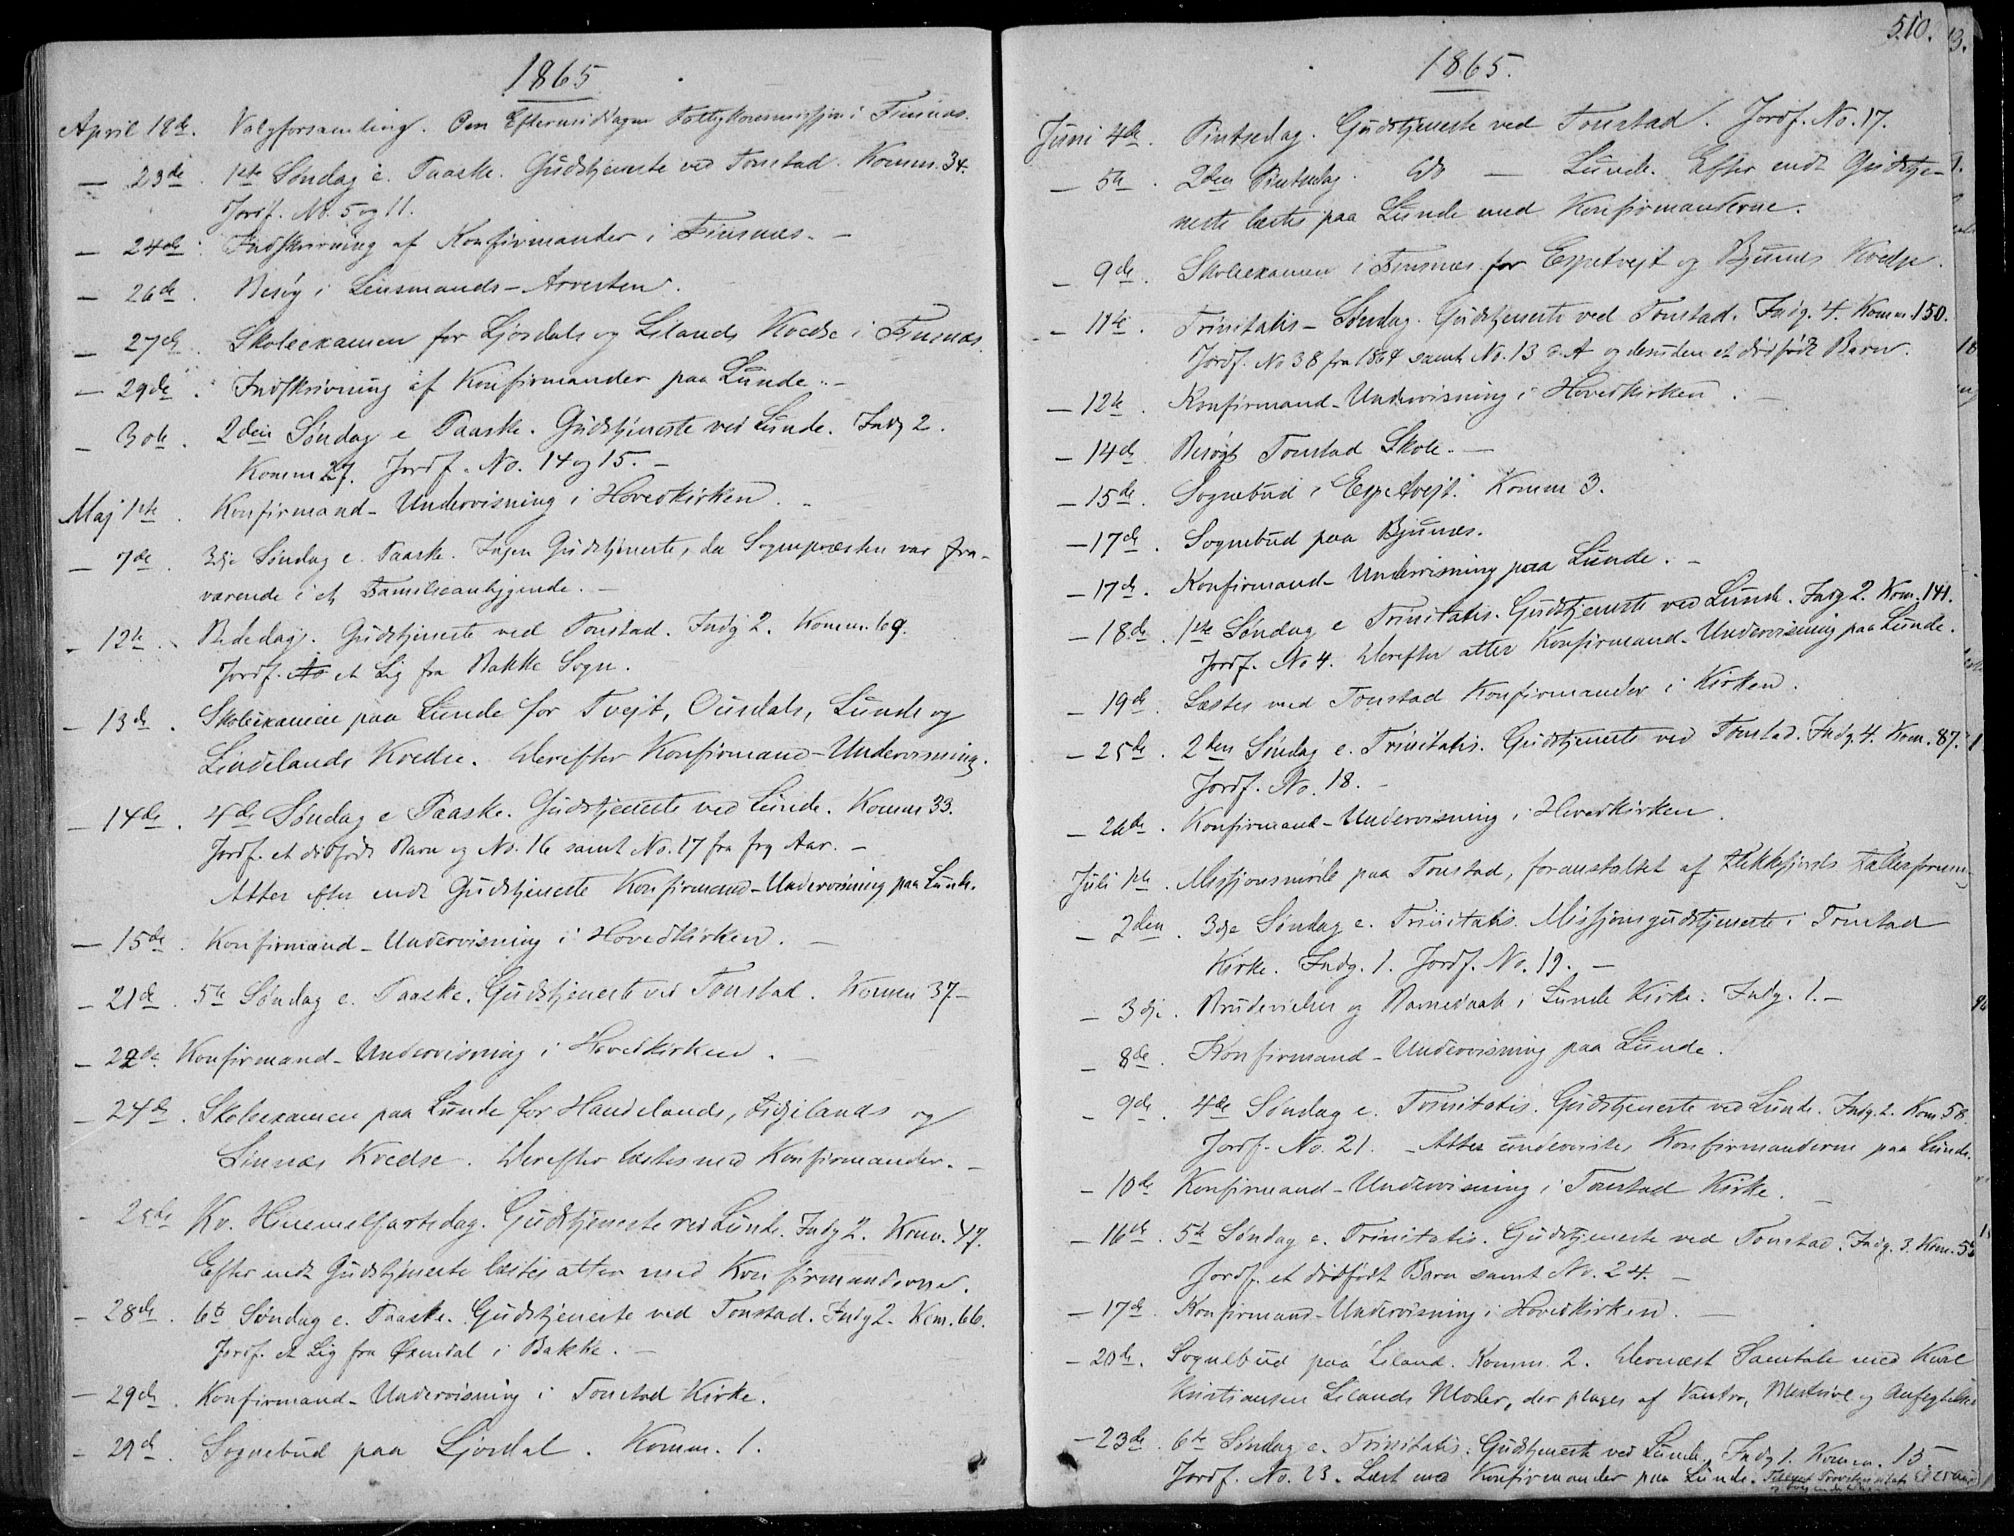 1865
April 18de. Valgforsamling. Om Eftermiddagen Fattigkommissjon i Finsnes.
— 23de. 1ste Søndag e. Paaske. Gudstjeneste ved Tonstad. Komm. 34.
Jordf. No. 5 og 11.
— 24de. Indskrivning af Konfirmander i Finsnes. —
— 26de. Besøg i Lensmands-Arresten.
— 27de. Skoleexamen for Ljosdals og Lilands Kredse i Finsnes.
— 29de. Indskrivning af Konfirmander paa Lunde. —
— 30te. 2den Søndag e Paaske. Gudstjeneste ved Lunde. Indg 2.
Komm 27. Jordf. No. 14 og 15. —
Maj 1ste. Konfirmand-Undervisning i Hovedkirken. —
— 7de. 3dje Søndag e. Paaske. Ingen Gudstjeneste, da Sognepræsten var fra-
værende i et Familieanliggende. —
— 12te. Bededag. Gudstjeneste ved Tonstad. Indg 2. Komm. 69.
Jordf. et Lig fra Bakke Sogn.
— 13de. Skoleexamen paa Lunde for Tvejt, Ousdals, Lunde og
Lindelands Kredse. Derefter Konfirmand-Undervisning.
— 14de. 4de Søndag e Paaske. Gudstjeneste ved Lunde. Komm 33.
Jordf. et dødfødt Barn og No. 16 samt No. 17 fra frg Aar. —
Atter efter endt Gudstjeneste Konfirmand-Undervisning paa Lunde.
— 15de. Konfirmand-Undervisning i Hovedkirken. —
— 21de. 5te Søndag e. Paaske. Gudstjeneste ved Tonstad. Komm 37 —
— 22de. Konfirmand-Undervisning i Hovedkirken. —
— 24de. Skoleexamen paa Lunde for Haudelands, og
Sinnes Kredse. Derefter læstes med Konfirmander. —
— 25de Kr. Himmelfartsdag. Gudstjeneste ved Lunde. Indg 2. Kom. 47.
Efter endt Gudstjeneste læstes atter med Konfirmanderne.
— 28de. 6te Søndag e. Paaske. Gudstjeneste ved Tonstad. Indg 2. Kom. 66.
Jordf. et Lig fra Øxendal i Bakke. —
— 29de. Konfirmand-Undervisning i Tonstad Kirke.
— 29de. Sognebud paa Ljosdal. Komm. 1.
510.
1865.
Juni 4de. Pintsedag. Gudstjeneste ved Tonstad. Jordf. No. 17.
— 5te. 2den Pintsedag. do — Lunde. Efter endt Gudstje-
neste læstes paa Lunde med Konfirmanderne.
— 9de. Skoleexamen i Finsnes for Espetvejt og Bjunes Kredse.
— 11te. Trinitatis-Søndag. Gudstjeneste ved Tonstad. Indg. 4. Komm. 150.
Jordf. No 38 fra 1864 samt No. 13 d. A og desuden et dødfødt Barn.
— 12te. Konfirmand-Undervisning i Hovedkirken. —
— 14de. Besøgt Tonstad Skole. —
— 15de. Sognebud i Espetvejt. Komm 3.
— 17de. Sognebud paa Bjunes.
— 17de. Konfirmand-Undervisning paa Lunde. —
— 18de. 1ste Søndag e Trinitatis. Gudstjeneste ved Lunde. Indg 2. Kom. 141.
Jordf. No 4. Derefter atter Konfirmand-Undervisning paa Lunde.
— 19de. Læstes med Tonstad Konfirmander i Kirken.
— 25de. 2den Søndag e. Trinitatis. Gudstjeneste ved Tonstad. Indg. 4. Kom. 87.
Jordf. No. 18. —
— 26de. Konfirmand-Undervisning i Hovedkirken.
Juli 1ste. Missjonsmøde paa Tonstad, foranstaltet af Flekkefjords
— 2den. 3dje Søndag e. Trinitatis. Missjonsgudstjeneste i Tonstad
Kirke. Indg. 1. Jordf. No. 19. —
— 3dje. Brudevielse og Barnedaab i Lunde Kirke. Indg. 1. —
— 8de. Konfirmand-Undervisning paa Lunde.
— 9de. 4de Søndag e. Trinitatis. Gudstjeneste ved Lunde. Indg. 2. Kom 58.
Jordf. No. 21. — Atter undervistes Konfirmanderne paa Lunde.
— 10de Konfirmand-Undervisning i Tonstad Kirke. —
— 16de. 5te Søndag e. Trinitatis. Gudstjeneste ved Tonstad. Indg. 3. Kom. 56
Jordf. et dødfødt Barn samt No. 24. —
— 17de. Konfirmand-Undervisning i Hovedkirken. —
— 20de. Sognebud paa Liland. Komm. 2. Dernæst Samtale med Karl
Kristiansen Lilands Moder, der plages af Vantro, Mistvivl og Anfegtelser
— 23de. 6te Søndag e. Trinitatis. Gudstjeneste ved Lunde. Indg 1. Komm. 15 —
Jordf. No. 23. Læst med Konfirmander paa Lunde.